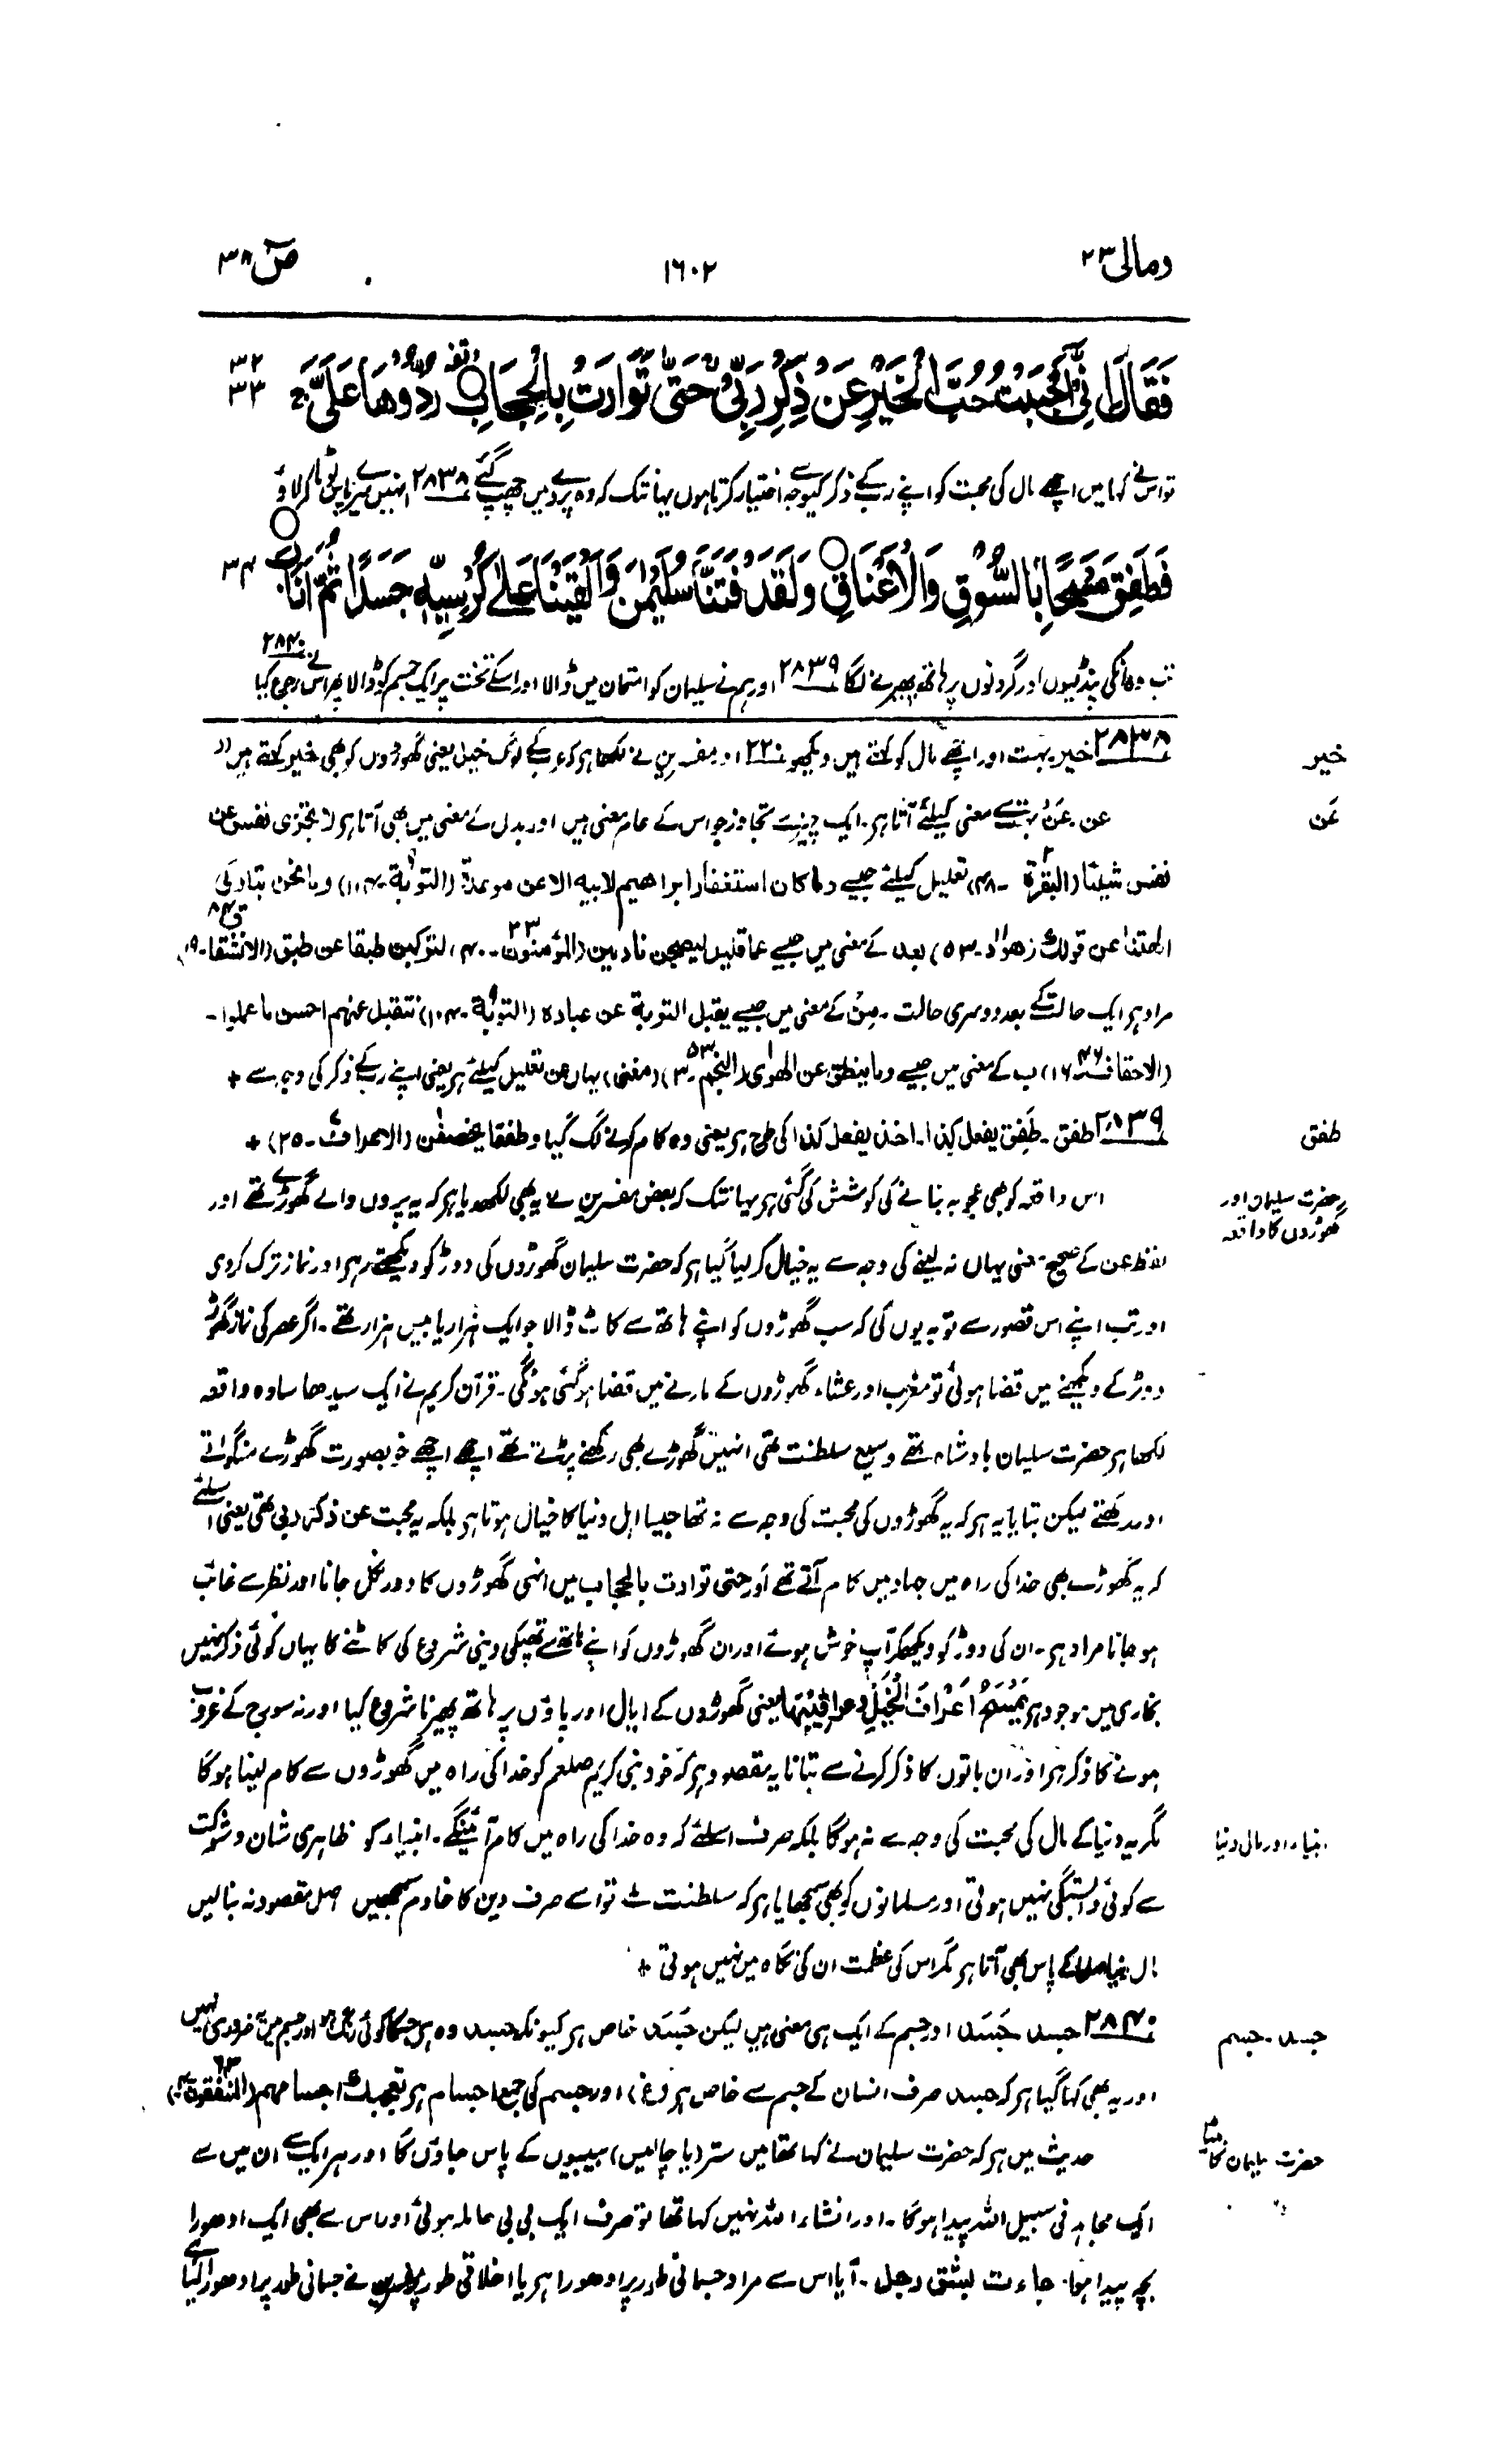 ومالی ۲۳
۱۶۰۲
صٓ ۳۸
فَقَالَ اِنِّیْۤ اَحْبَبْتُ حُبَّ الْخَیْرِ عَنْ ذِكْرِ رَبِّیْ حَتّٰی تَوَارَتْ بِالْحِجَابِ رُدُّوْهَا عَلَیَّ
۳۲
۳۳
تو اس نے کہا میں اچھے مال کی محبت کو اپنے رب کے ذکر کیوجہ سے اختیار کرتا ہوں یہانتک کہ وہ پردے میں چھپ گئے ۲۸۳۸ انہیں میرے پاس لوٹا کر لاؤ
فَطَفِقَ مَسْحًۢا بِالسُّوْقِ وَالْاَعْنَاقِ وَلَقَدْ فَتَنَّا سُلَیْمٰنَ وَاَلْقَیْنَا عَلٰی كُرْسِیِّهٖ جَسَدًا ثُمَّ اَنَابَ
۳۴
تب وہ انکی پنڈلیوں اور گردنوں پر ہاتھ پھیرنے لگا ۲۸۳۹ اور ہم نے سلیمان کو امتحان میں ڈالا اور اسکے تخت پر ایک جسم کو ڈالا پھر اس نے رجوع کیا ۲۸۴۰
۲۸۳۸ خیر بہت اور اچھے مال کو کہتے ہیں دیکھو ۲۲۰ اور مفسرین نے لکھا ہو کہ عرب کے لوگ خیل یعنی گھوڑوں کو بھی خیر کہتے ہیں (ر)
خیر
عن ۔ عَنْ بہت سے معنی کیلئے آتا ہو ۔ ایک چیز سے تجاوز جو اس کے عام معنی ہیں اور بدل کے معنی میں بھی آتا ہو لا تجزی نفس عن
عَن
نفس شیئا (البقرة ۲ ۔ ۴۸) تعلیل کیلئے جیسے وما کان استغفار ابراھیم لابیہ الا عن موعدة (التوبة ۹ ۔ ۱۱۴) وما نحن بتارکی
اٰلھتنا عن قولك (ھود ۱۱ ۔ ۵۳) بعد کے معنی میں جیسے عما قلیل لیصبحن نادمین (المؤمنون ۲۳ ۔ ۴۰) لترکبن طبقا عن طبق (الانشقاق ۸۴ ۔ ۱۹)
مراد ہو ایک حالت کے بعد دوسری حالت ۔ مِن کے معنی میں جیسے یقبل التوبة عن عبادہ (التوبة ۹ ۔ ۱۰۴) نتقبل عنھم احسن ما عملوا ۔
(الاحقاف ۴۶ ۔ ۱۶) ب کے معنی میں جیسے وما ینطق عن الھوٰی (النجم ۵۳ ۔ ۳) (مغنی) یہاں عن تعلیل کیلئے ہو یعنی اپنے رب کے ذکر کی وجہ سے +
۲۸۳۹ طفق ۔ طَفِقَ یفعل کذا ۔ اخذ یفعل کذا کی طرح ہو یعنی وہ کام کرنے لگ گیا وطفقا یخصفٰن (الاعراف ۷ ۔ ۲۵) +
طفق
اس واقعہ کو بھی عجوبہ بنانے کی کوشش کی گئی ہو یہانتک کہ بعض مفسرین نے یہ بھی لکھدیا ہو کہ یہ پروں والے گھوڑے تھے اور
حضرت سلیمان اور
گھوڑوں کا واقعہ
لفظ عن کے صحیح معنی یہاں نہ لینے کی وجہ سے یہ خیال کر لیا گیا ہو کہ حضرت سلیمان گھوڑوں کی دوڑ کو دیکھتے رہو اور نماز ترک کردی
اور تب اپنے اس قصور سے توبہ یوں کی کہ سب گھوڑوں کو اپنے ہاتھ سے کاٹ ڈالا جو ایک ہزار یا بیس ہزار تھے ۔ اگر عصر کی نماز گھوڑ
دوڑ کے دیکھنے میں قضا ہوئی تو مغرب اور عشاء گھوڑوں کے مارنے میں قضا ہو گئی ہونگی ۔ قرآن کریم نے ایک سیدھا سادہ واقعہ
لکھا ہو حضرت سلیمان بادشاہ تھے وسیع سلطنت تھی انہیں گھوڑے بھی رکھنے پڑتے تھے اچھے اچھے خوبصورت گھوڑے منگواتے
اور رکھتے لیکن بتایا یہ ہو کہ یہ گھوڑوں کی محبت کی وجہ سے نہ تھا جیسا اہل دنیا کا خیال ہوتا ہو بلکہ یہ محبت عن ذکر ربی تھی یعنی اسلئے
کہ یہ گھوڑے بھی خدا کی راہ میں جہاد میں کام آتے تھے اور حتی توارت بالحجاب میں انہی گھوڑوں کا دور نکل جانا اور نظر سے غائب
ہو جانا مراد ہو ۔ ان کی دوڑ کو دیکھکر آپ خوش ہوئے اور ان گھوڑوں کو اپنے ہاتھ سے تھپکی دینی شروع کی کاٹنے کا یہاں کوئی ذکر نہیں
بخاری میں موجود ہو یَمْسَحُ اَعْرَافَ الْخَیْلِ وعراقیبھا یعنی گھوڑوں کے ایال اور پاؤں پر ہاتھ پھیرنا شروع کیا اور نہ سورج کے غروب
ہونے کا ذکر ہو اور ان باتوں کا ذکر کرنے سے بتانا یہ مقصود ہو کہ خود نبی کریم صلعم کو خدا کی راہ میں گھوڑوں سے کام لینا ہوگا
مگر یہ دنیا کے مال کی محبت کی وجہ سے نہ ہوگا بلکہ صرف اسلئے کہ وہ خدا کی راہ میں کام آئینگے ۔ انبیاء کو ظاہری شان و شوکت
انبیاء اور مال دنیا
سے کوئی دلبستگی نہیں ہوتی اور مسلمانوں کو بھی سمجھایا ہو کہ سلطنت ملے تو اسے صرف دین کا خادم سمجھیں اصل مقصود نہ بنالیں
مال انبیاء کے پاس بھی آتا ہو مگر اس کی عظمت ان کی نگاہ میں نہیں ہوتی +
۲۸۴۰ جسد جَسَد اور جسم کے ایک ہی معنی ہیں لیکن جَسَد خاص ہو کیونکہ جسد وہ ہو جسکا کوئی رنگ ہو اور جسم میں یہ ضروری نہیں
جسد ۔ جسم
اور یہ بھی کہا گیا ہو کہ جسد صرف انسان کے جسم سے خاص ہو (غ) اور جسم کی جمع اجسام ہو تعجبك اجسامھم (المنٰفقون ۶۳ ۔ ۴)
حدیث میں ہو کہ حضرت سلیمان نے کہا تھا میں ستر (یا چالیس) بیبیوں کے پاس جاؤں گا اور ہر ایک سے ان میں سے
حضرت سلیمان کا
ایک مجاہد فی سبیل اللہ پیدا ہوگا ۔ اور انشاء اللہ نہیں کہا تھا تو صرف ایک بی بی حاملہ ہوئی اور اس سے بھی ایک ادھورا
بچہ پیدا ہوا ۔ جاءت بشق رجل ۔ آیا اس سے مراد جسمانی طور پر ادھورا ہو یا اخلاقی طور پر نے جسمانی طور پر ادھورا لیا